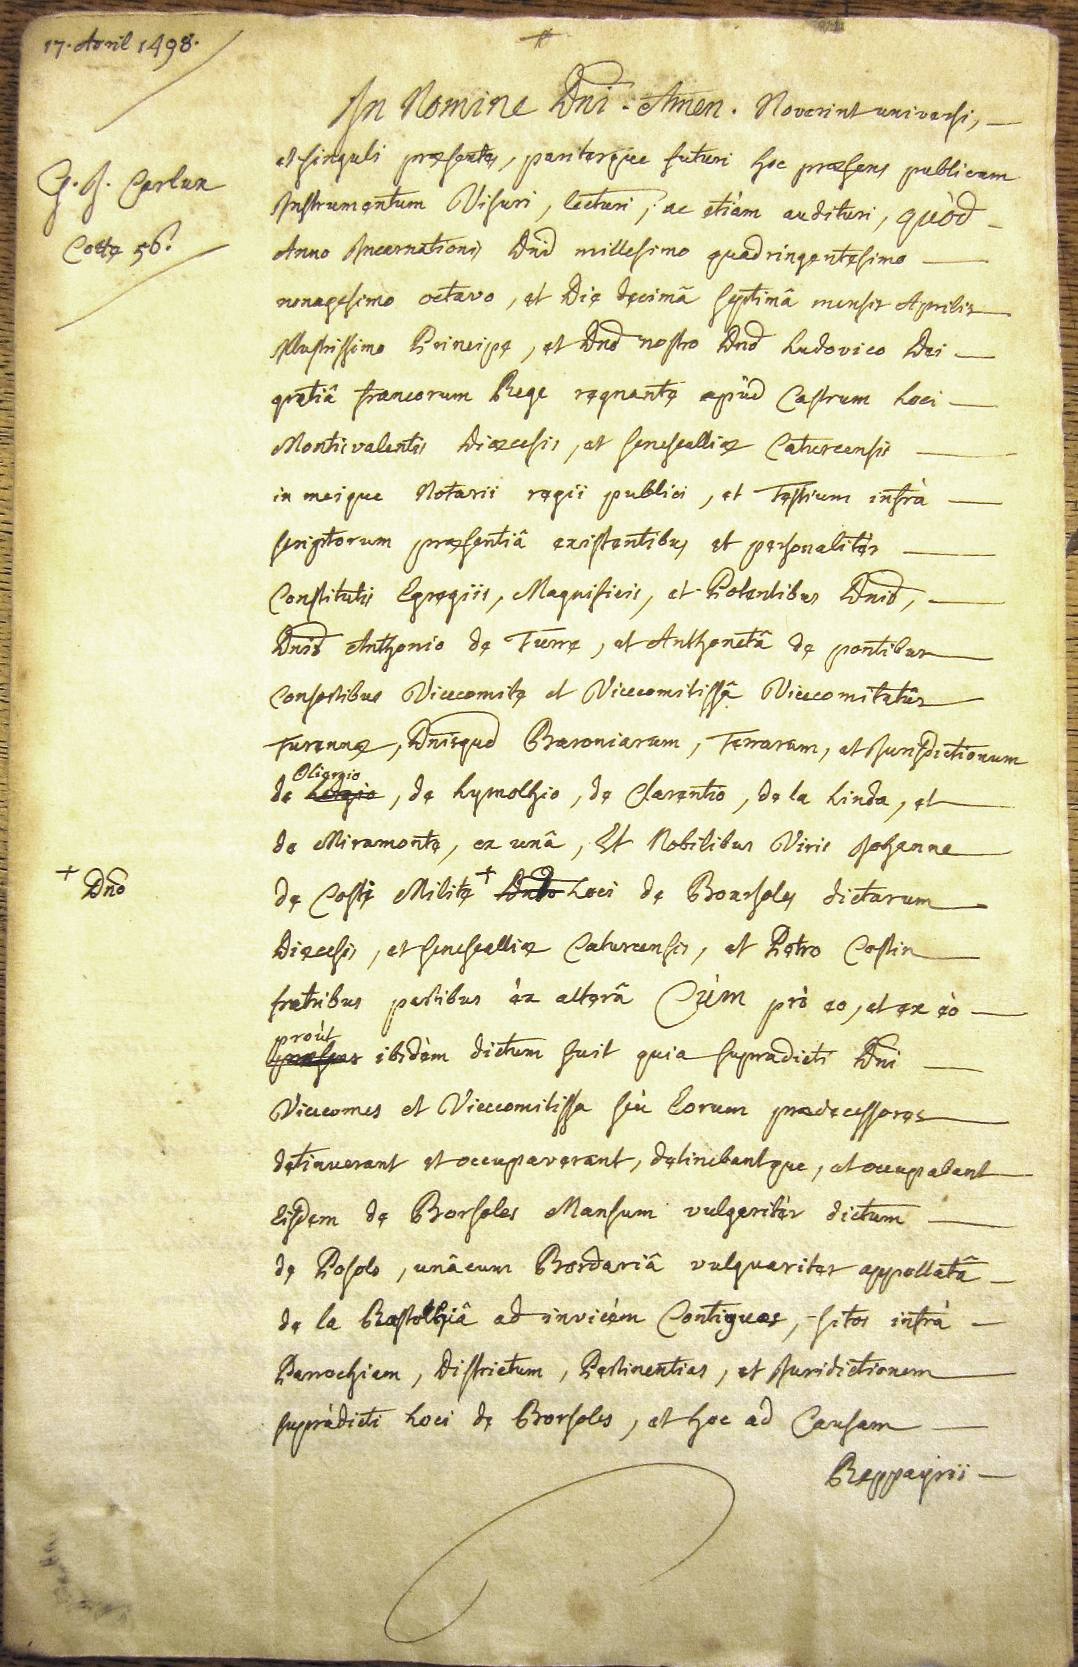 17. Avril 1498.
In Nomine Dñi . Amen . Noverint universi,
et singuli præsentes, pariterque futuri hoc præsens publicum
G. G. Carlux
Instrumentum Visuri, lecturi, ac etiàm audituri, quòd
Cotte 56.
Anno Incarnationis Dnid millesimo quadringentesimo
nonagesimo octavo, et Die decimâ septimâ mensis Aprilis
Illustrissimo Principe, et Dno nostro Dno Ludovico Dei
gratiâ francorum Rege regnante apùd Castrum Loci
Montisvalentis Diæcesis, et senescalliæ Caturcensis
in meique Notarii regii publici, et Testium infrà
scriptorum præsentiâ existentibus et personalitèr
Constitutis Egregiis, Magnificis, et Potentibus Dnis,
Dnis Anthonio de Turre, et Anthonetâ de pontibus
Consortibus Vicecomite et Vicecomitissâ Vicecomitatûs
Turennæ, Dnisque Baroniarum, Terrarum, et Jurisdictionum
Oliergio
de , de Lymolhio, de Clarentio, de la Linda, et
de Miramonte, ex unâ, Et Nobilibus Viris Johanne
+ Dño
de Costi Milite + Dno Loci de Boursoles dictarum
Diæcesis, et senescalliæ Caturcensis, et Petro Costin
fratribus partibus èx alterâ Cùm prò eo, et ex eò
proùt
ibidèm dictum fuit quia supradicti Dñi
Vicecomes et Vicecomitissa seù Eorum prædecessores
detinuerant et occupaverant, detinebantque, et occupabant
Eisdem de Borsoles Mansum vulgaritèr dictum
de Posols, unàcum Bordariâ vulguariter appellatâ
de la Rastolhiâ ad invicèm Contiguas, sitos infrà
Parrochiam, Districtum, Pertinentias, et Juridictionem
supràdicti Loci de Borsoles, et hoc ad Causam
Reppayrii